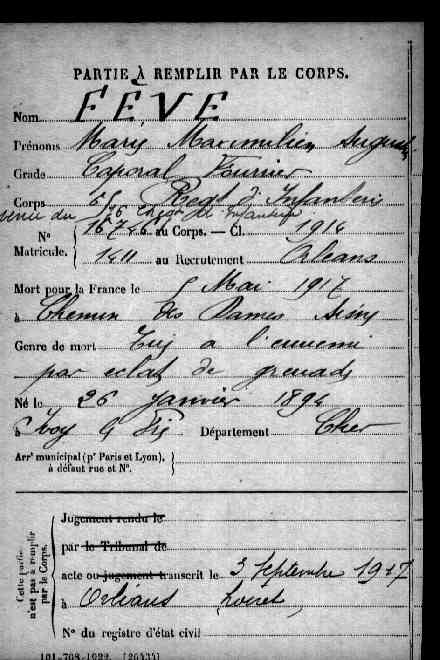 PARTIE À REMPLIR PAR LE CORPS.
Nom FÈVE
Prénoms Marie Maximilien Auguste
Grade Caporal Fourrier
Corps Regt d'Infanterie
venu du Regt d'Infanterie
N° 16746 au Corps. — Cl. 1914
Matricule. 1411 au Recrutement Orléans
Mort pour la France le 5 Mai 1917
à Chemin des Dames Aisne
Genre de mort Tué à l'ennemi
par eclat de grenade
Né le 26 Janvier 1894
à Ivoy le Pré Département Cher
Arrt municipal (pr Paris et Lyon), à défaut rue et N°.
Cette partie n'est pas à remplir par le Corps.
Jugement rendu le
par le Tribunal de
acte ou jugement transcrit le 3 Septembre 1917
à Orléans Loiret
N° du registre d'état civil
101-708-1922. [26434]